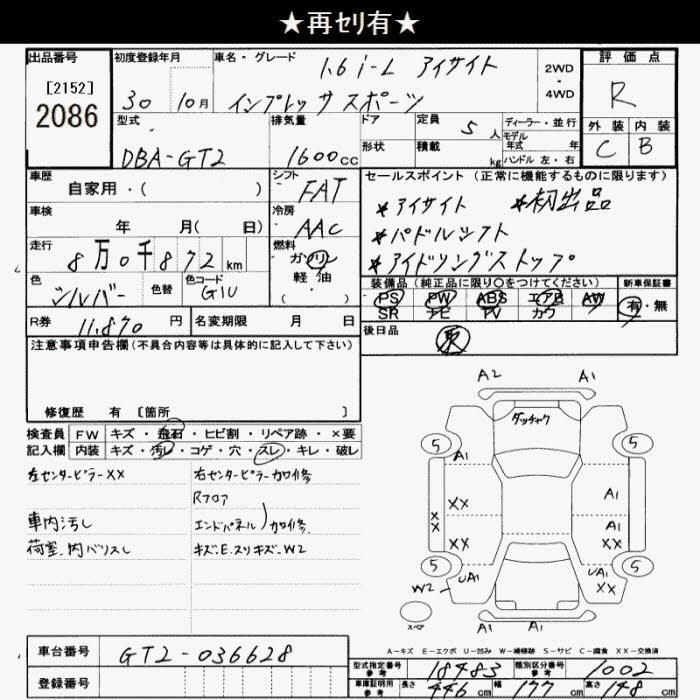 ★再ｾﾘ有★
出品番号
[2152]
2086
初度登録年月
30 10月
車名・グレード
1.6 i-L アイサイト
インプレッサスポーツ
2WD
・
4WD
評価点
R
外装 内装
C B
型式
DBA-GT2
排気量
1600cc
ドア
形状
定員 5人
積載 kg
ディーラー・並行
モデル
年式 年
ハンドル 左・右
車歴
自家用・( )
シフト
FAT
車検
年 月( 日)
冷房
AAC
走行
8万0千872km
燃料
ガソリン
軽・油
( ・ )
色
シルバー
色替
色コード
G1U
R券 11,870円
名変期限 月 日
セールスポイント(正常に機能するものに限ります)
★アイサイト ★初出品
★パドルシフト
★アイドリングストップ
装備品(純正品に限り○をつけてください)
PS PW ABS エアB AW
SR ナビ TV カワ
新車保証書
有・無
後日品
注意事項申告欄(不具合内容等は具体的に記入して下さい)
修復歴 有 [箇所 ]
検査員 FW キズ・飛石・ヒビ割・リペア跡・×要
記入欄 内装 キズ・汚れ・コゲ・穴・スレ・キレ・破レ
左センターピラーXX
車内汚し
荷室内バリスレ
右センターピラー加修
Rフロア
エンドパネル)加修
キズ.E.スリキズ.W2
A2 A1
ダッチャク
5 5
A1
XX A1
XX A1
XX XX
5 5
UA1 UA1
W2 XX
スペア
A1 A1
A-キズ E-エクボ U-凹み W-補修跡 S-サビ C-腐食 XX-交換済
車台番号 GT2-036628
登録番号
型式指定番号
参考
18483
類別区分番号
参考
1002
車庫証明用
参考
長さ 446cm 幅 177cm 高さ 148cm